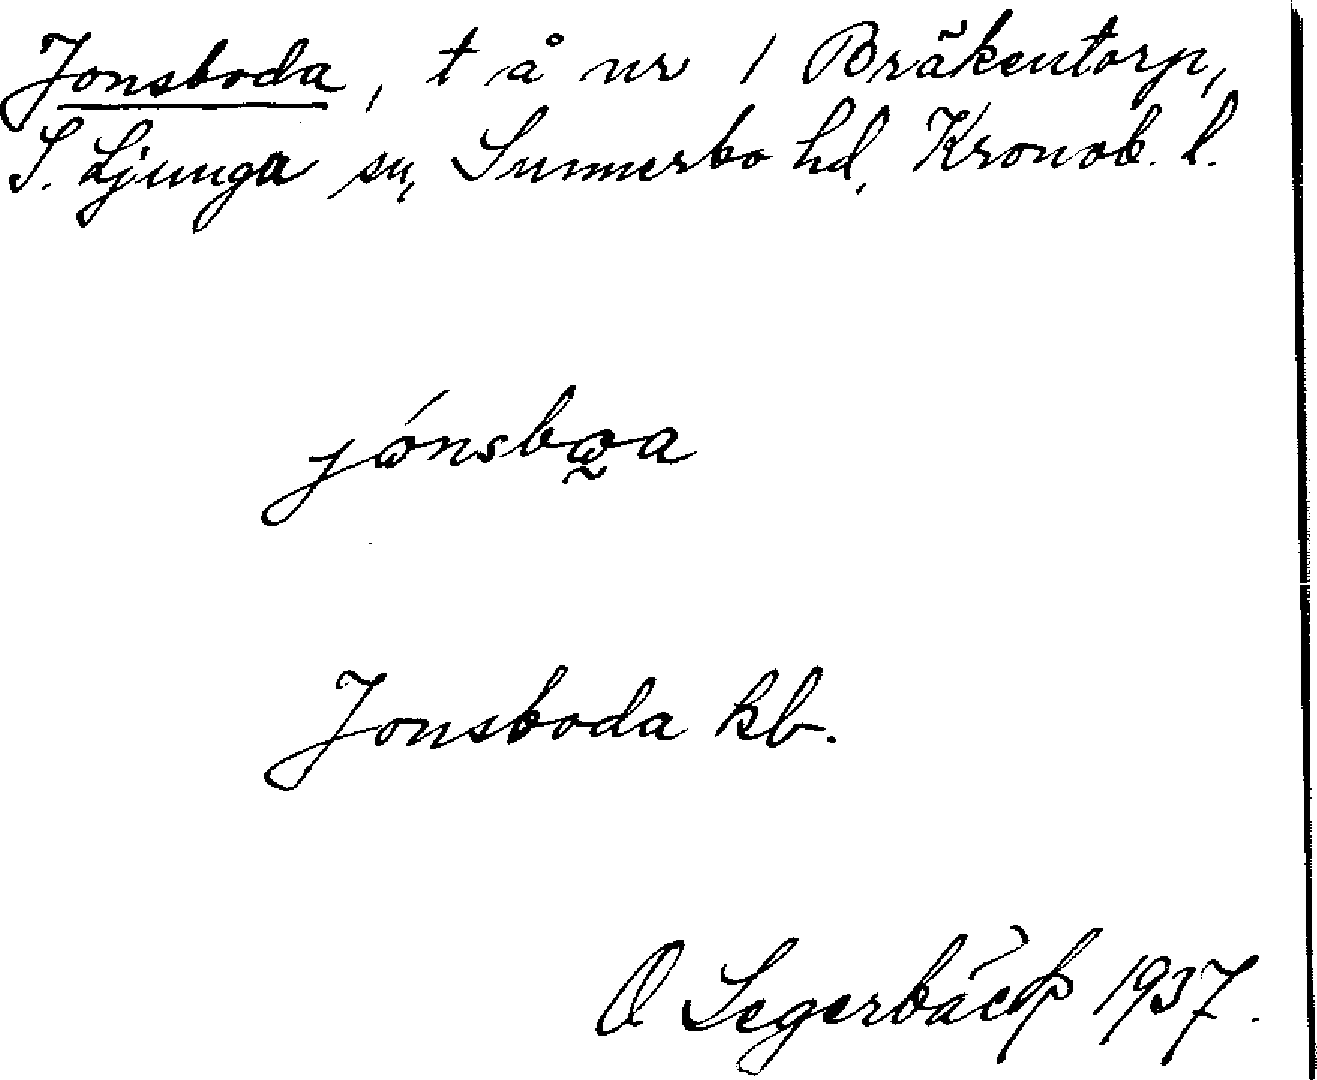 Jonsboda, t å nr 1 Bräkentorp,
S. Ljunga sn, Sunnerbo hd, Kronob. l.
jónsbo̰a
Jonsboda kb.
O Segerbäck 1937.